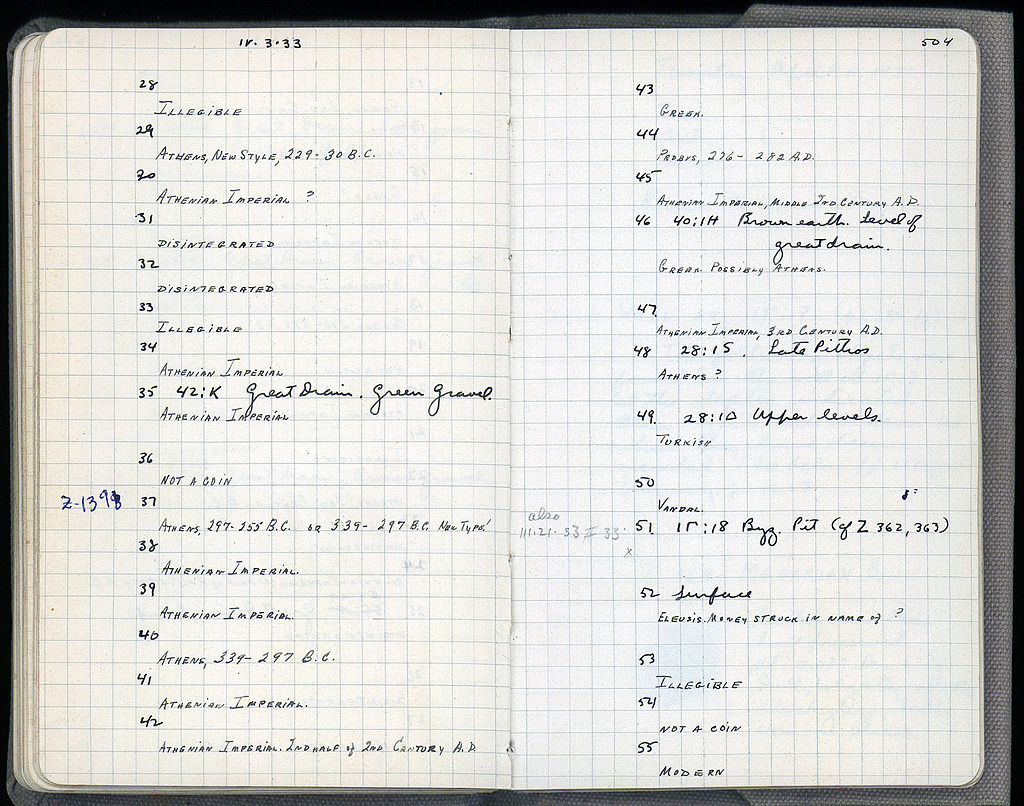 IV. 3.33
28
ILLEGIBLE
29
ATHENS, NEW STYLE, 229-30 B.C.
30
ATHENIAN IMPERIAL ?
31
DISINTEGRATED
32
DISINTEGRATED
33
ILLEGIBLE
34
ATHENIAN IMPERIAL
35 42:K Great Drain. Green Gravel.
ATHENIAN IMPERIAL
36
NOT A COIN
Z-1398 37
ATHENS, 297-255 B.C. OR 339-297 B.C. NEW TYPE!
38
ATHENIAN IMPERIAL.
39
ATHENIAN IMPERIAL.
40
ATHENS, 339-297 B.C.
41
ATHENIAN IMPERIAL.
42
ATHENIAN IMPERIAL. 2ND HALF of 2ND CENTURY A.D.
504
43
GREEK.
44
PROBUS, 276-282 A.D.
45
ATHENIAN IMPERIAL, MIDDLE 2ND CENTURY A.D.
46 40:ΙΗ Brown earth. Level of
great drain.
GREEK POSSIBLY ATHENS.
47.
ATHENIAN IMPERIAL, 3RD CENTURY A.D.
48 28:15. Late Pithos
ATHENS ?
49. 28:ΙΔ Upper levels.
TURKISH
50
VANDAL.
also
III.21.33 # 33
51. ΙΓ:18 Byz. Pit (of Z 362, 363)
x
52 Surface
ELEUSIS. MONEY STRUCK IN NAME of ?
53
ILLEGIBLE
54
NOT A COIN
55
MODERN